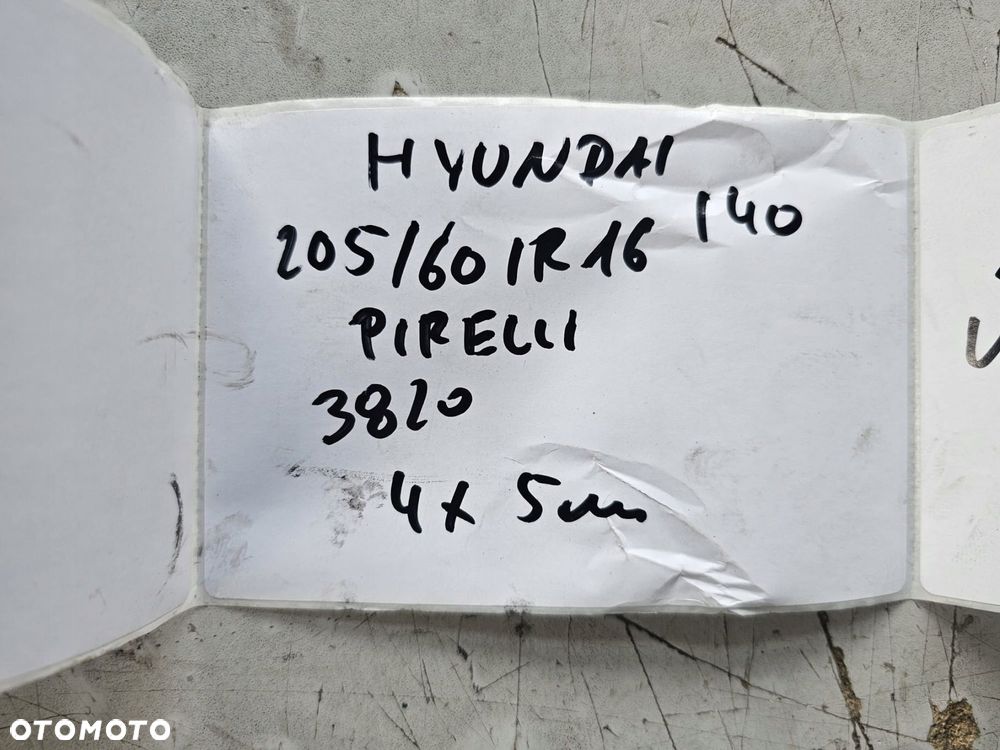 HYUNDAI
I40
205/60/R16
PIRELLI
3820
4x 5mm
OTOMOTO